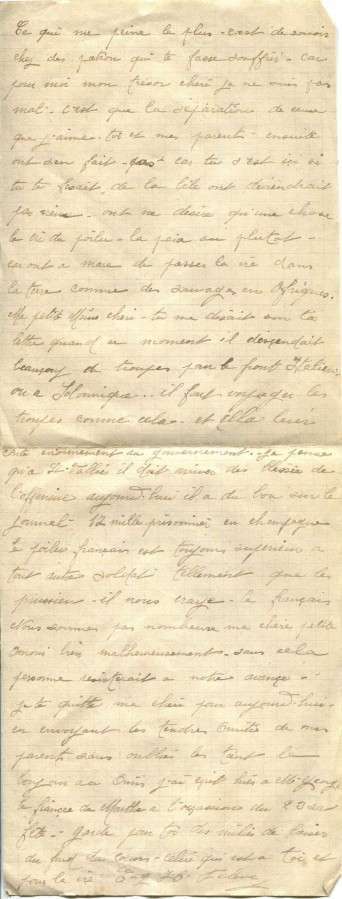 Ce qui me peine le plus - c'est de savoir
chez des patron qui te fasse souffrir - car
pour moi mon trésor chéri je ne suis pas
mal - c'est que la séparation de ceux
que j'aime toi et mes parents - ensuite
ont s'en fait - pas car tu s'est ici si
tu te de la bile ont deviendrait
pas vieux - ont ne désire qu'une chose
le cri du poilu - la paix au plutot -
car ont a marre de passer la vie dans
la terre comme des sauvages en Afriques.
Ma petite chérie - tu me disait sur ta
lettre quand ce moment il descendait
beaucoup de troupes pour le front Italien
ou a Salonique - il faut voyager les
troupes comme cela - et
énormement au gouvernement - Je pense
qu'a il doit arriver des blessés de
l'offensive aujourd'hui il a du bon sur le
journal 12 mille prisonniers en champagne
le poilus francais est toujours supérieur a
tout autre soldat tellement que les
prussien - il nous - le français
Nous sommes pas nombreux ma chère petite
bien malheureusement - sans cela
personne résisterait a notre avance
je te quitte ma chérie pour aujourd'hui -
en envoyant les tendres amitiés de mes
parents sans oublier les
toujours j'ai écrit hier a
le fiancé de Marthe a l'occasion du 23 sa
fête - garde pour toi des milles de baisers
du celui qui est a toi et
pour la vie